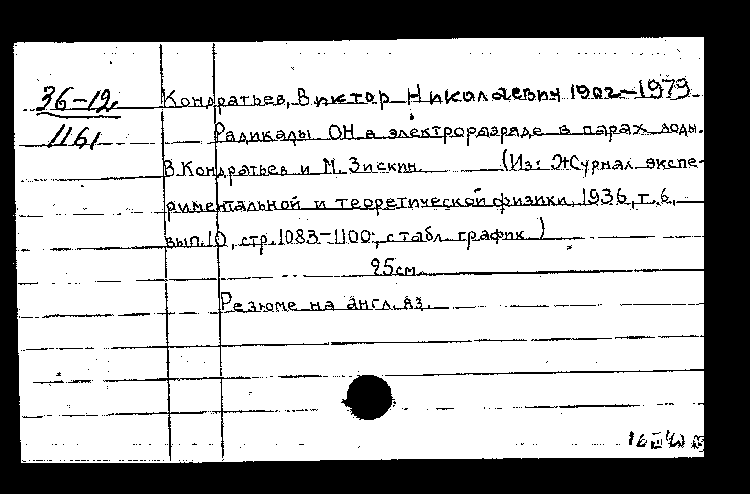 36-12
1161
Кондратьев, Виктор Николаевич 1902-1979
Радикалы ОН в электроразряде в парах воды.
В. Кондратьев и М. Зискин. (Из: Журнал экспе-
риментальной и теоретической физики, 1936, т. 6,
вып. 10, стр. 1083-1100; с табл. график.)
25 см.
Резюме на англ. яз.
16 III